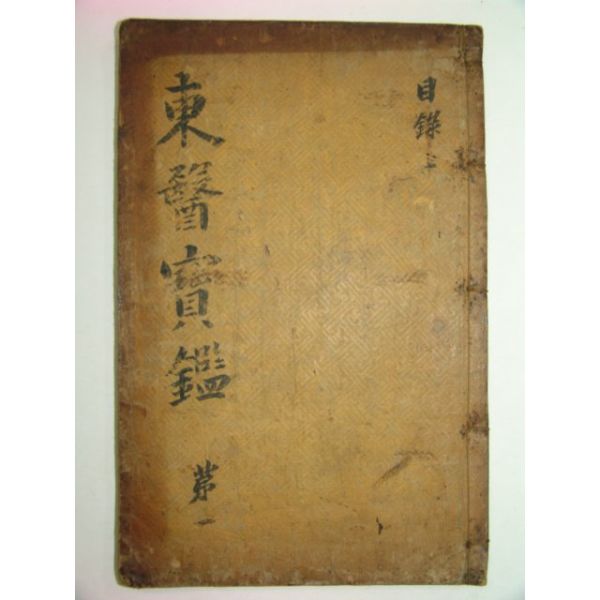 目錄上
東醫寶鑑
苐一